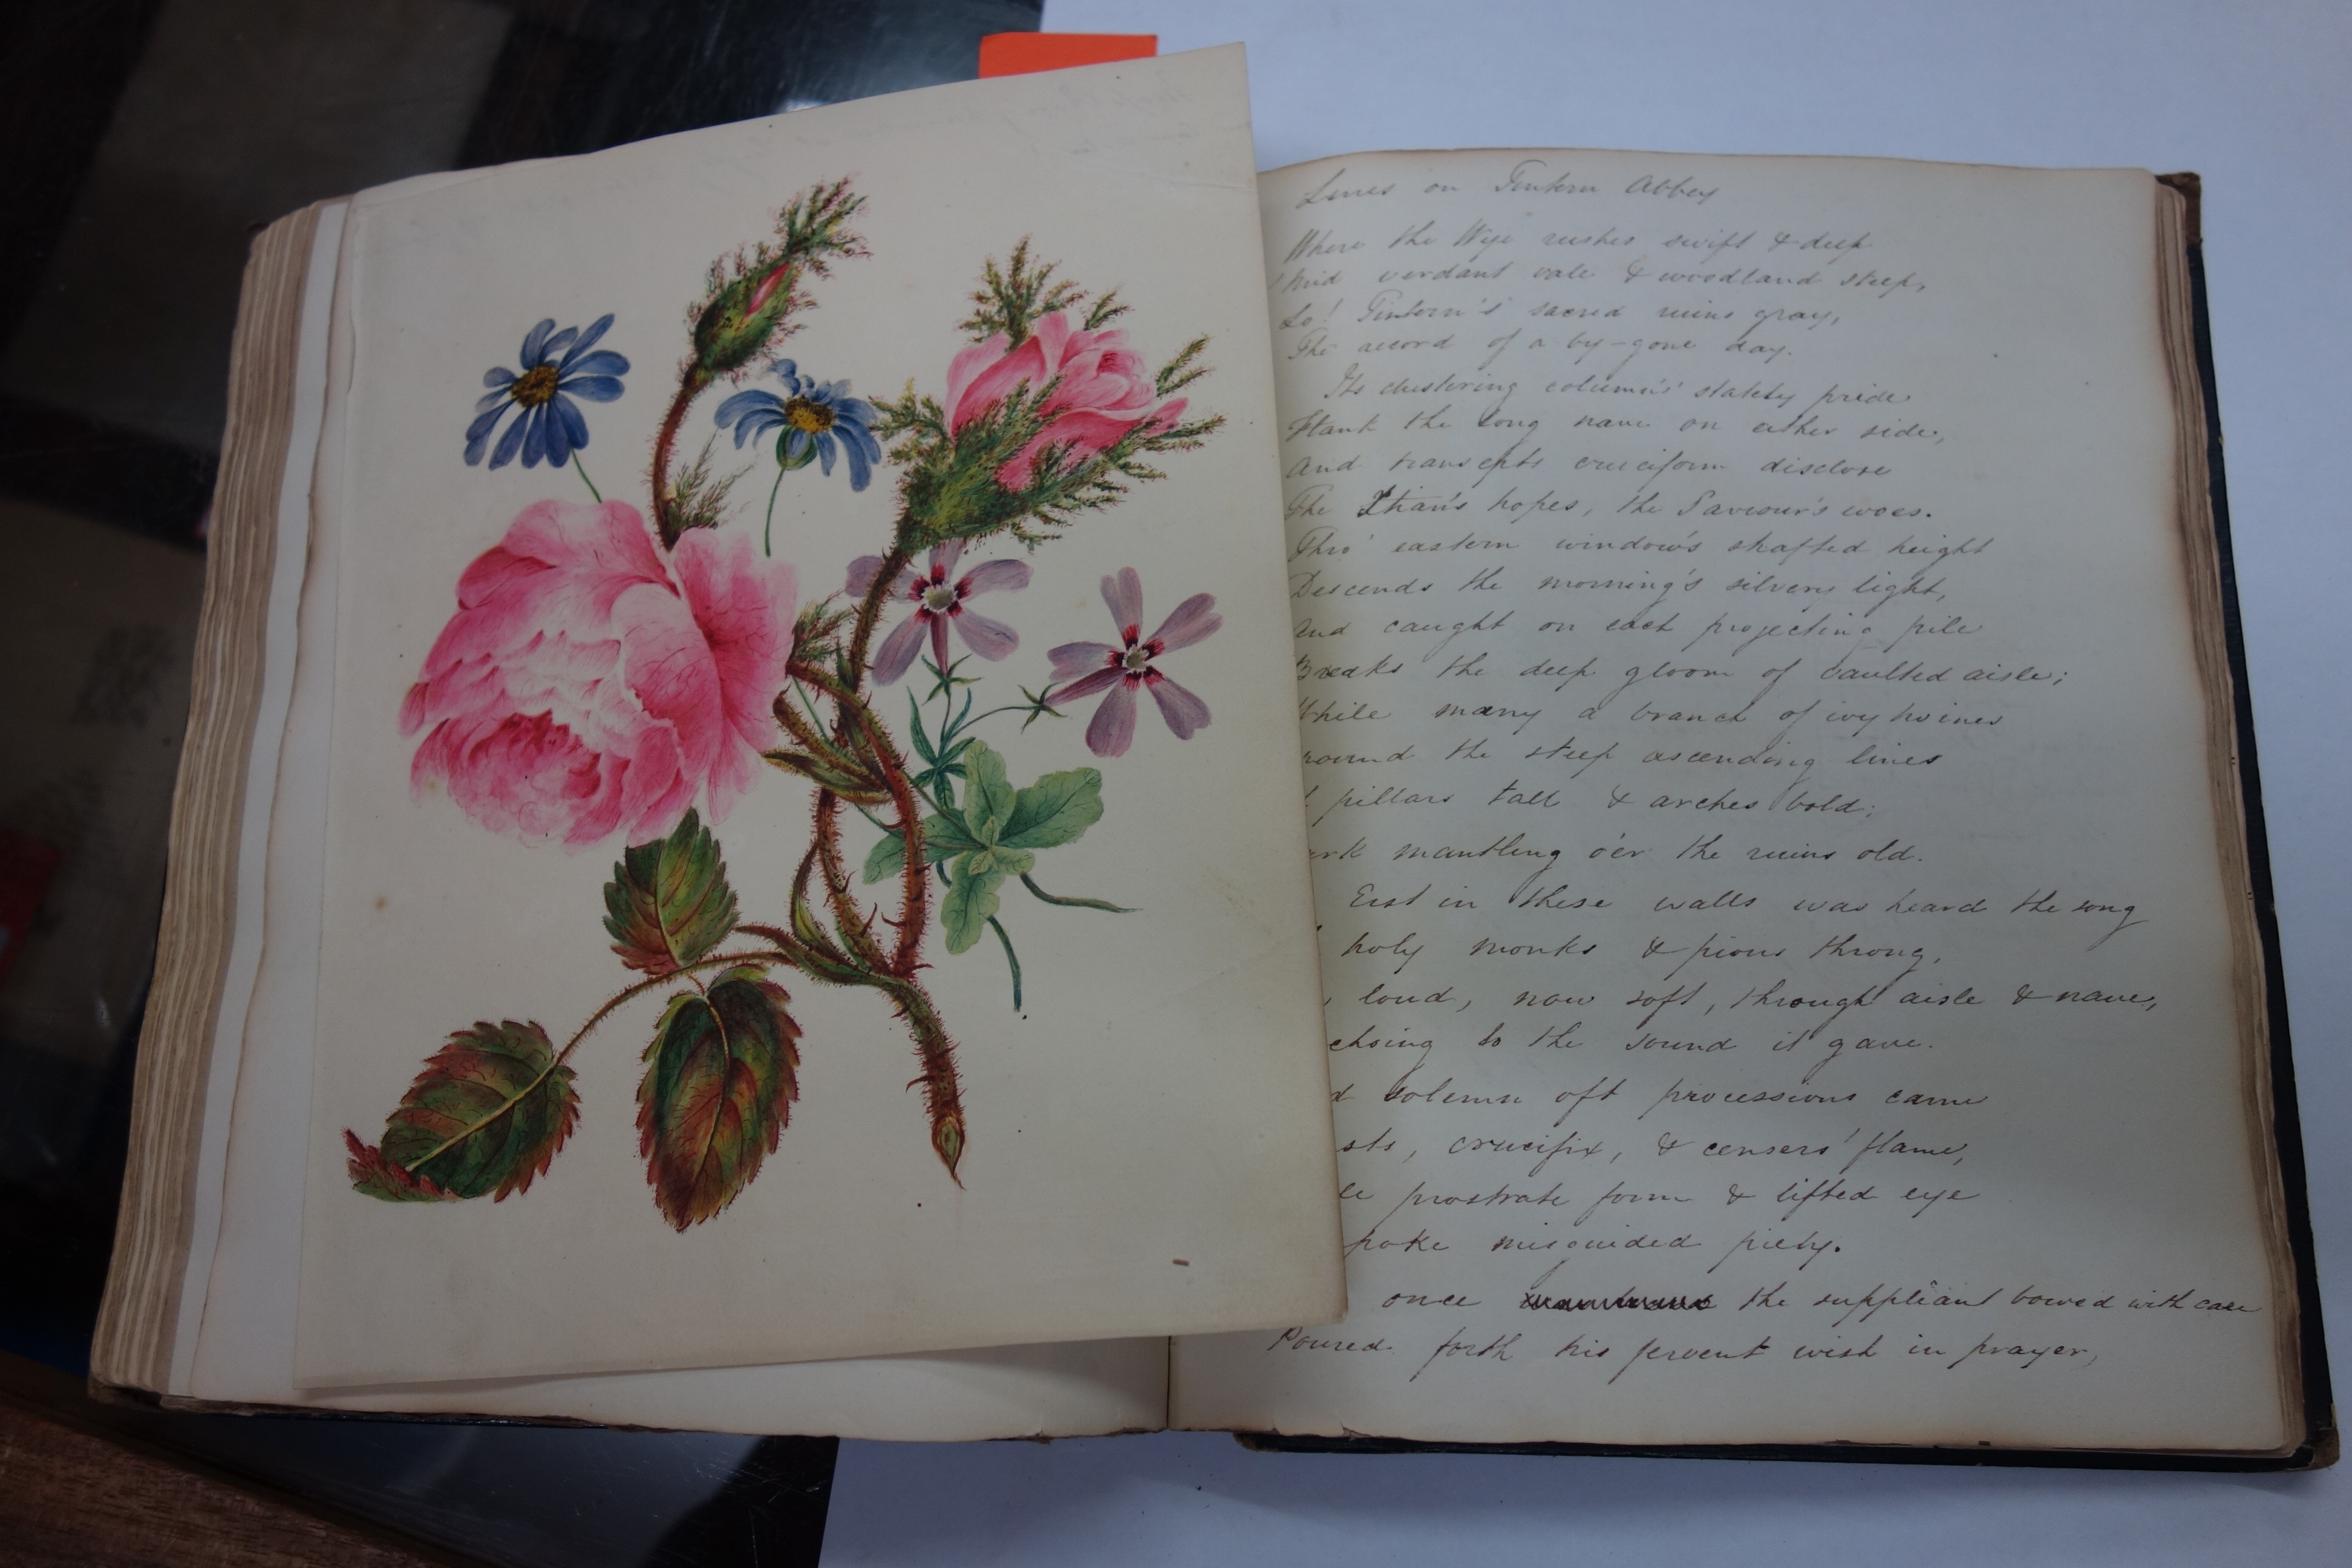 Lines on Tintern Abbey
Where the Wye rushes swift & deep
Mid verdant vale & woodland steep,
Lo! Tintern's sacred ruins gray,
The record of a by-gone day.
Its clustering column's' stately pride
Flank the long nave on either side,
And transepts cruciform disclose
The Xtian's hopes, the Saviour's woes.
Thro' eastern window's shafted height
Descends the morning's silvery light,
And caught on each projecting pile
Breaks the deep gloom of vaulted aisle;
While many a branch of ivy twines
round the steep ascending lines
pillars tall & arches bold;
ark mantling o'er the ruins old.
Erst in these walls was heard the song
holy monks & pious throng,
loud, now soft, through aisle & nave,
choing to the sound it gave.
d solemn oft processions came
sts, crucifix, & censers' flame,
le prostrate form & lifted eye
poke misguided piety.
once the suppliant bowed with care
Poured forth his fervent wish in prayer,